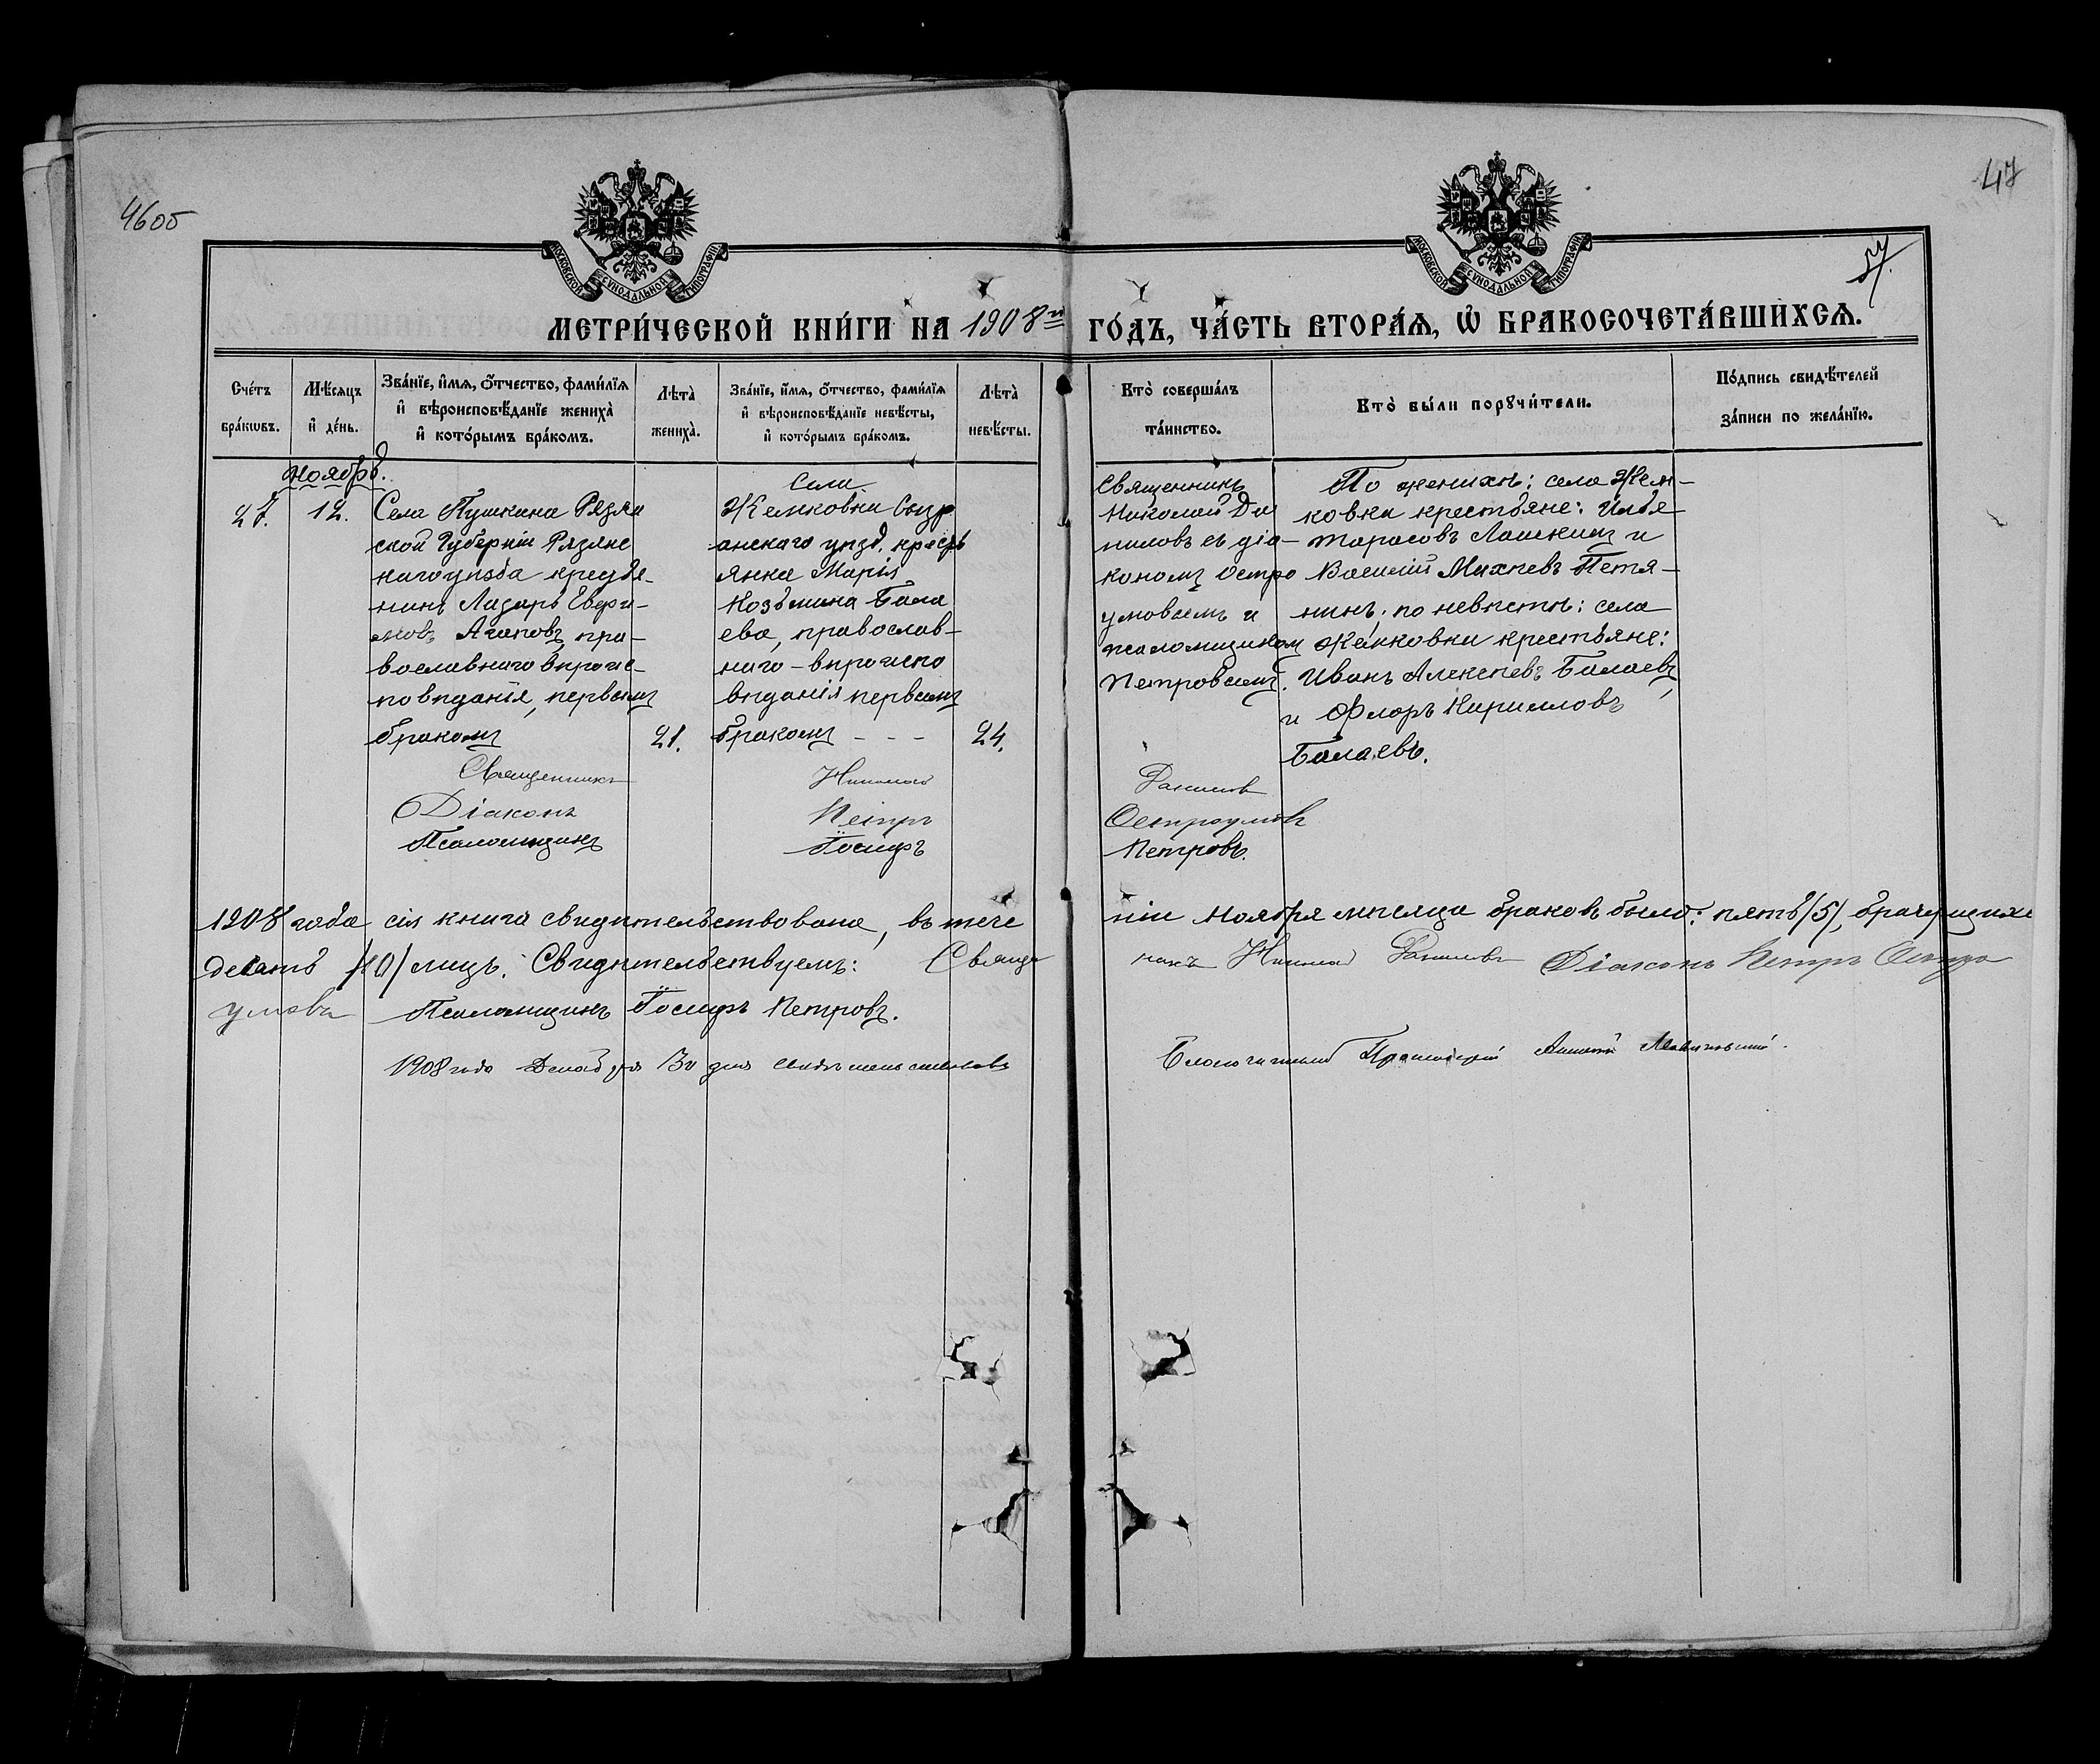 46об
47
МОСКОВСКОЙ СѴНОДАЛЬНОЙ ТИПОГРАФІИ
МОСКОВСКОЙ СѴНОДАЛЬНОЙ ТИПОГРАФІИ
МЕТРИ́ЧЕСКОЙ КНИ́ГИ НА 1908й ГО́ДЪ, ЧА́СТЬ ВТОРА́Ѧ, Ѽ БРАКОСОЧЕТА́ВШИХСѦ.
Сче́тъ
бра́кѡвъ.
Мѣ́сѧцъ
и҆ де́нь.
Зва́нїе, и҆́мѧ, ѻ҆́тчество, фами́лїѧ
и҆ вѣроисповѣ́данїе жениха̀
и҆ кото́рымъ бра́комъ.
Лѣта̀
жениха̀.
Зва́нїе, и҆́мѧ, ѻ҆́тчество, фами́лїѧ
и҆ вѣроисповѣ́данїе невѣ́сты,
и҆ кото́рымъ бра́комъ.
Лѣта̀
невѣ́сты.
Кто̀ соверша́лъ
та́инство.
Кто̀ бы́ли порꙋчи́тели.
По́дпись свидѣ́телей
за́писи по жела́нїю.
Ноябрь.
27.
12.
Села Пушкина Рязан
ской Губерніи Рязанс
каго уѣзда крестья-
нинъ Лазарь Еверги-
мовъ Агаповъ, пра-
вославнаго вѣроис-
повѣданія, первымъ
бракомъ
21.
Села
Жемковки Сызр
анскаго уѣзд. кресть
янка Марія
Козьмина Бала
ева, православ-
наго-вѣроиспо
вѣданія первымъ
бракомъ - - -
24.
Священникъ
Николай Да
ниловъ съ діа-
кономъ Остро
умовымъ и
псаломщикомъ
Петровымъ.
По женихѣ: села Жем-
ковки крестьяне: Илья
Тарасовъ Лашкинъ и
Василій Михѣевъ Петя-
нинъ; по невѣстѣ: села
Жемковки крестьяне:
Иванъ Алексѣевъ Балаевъ,
и Флоръ Кирилловъ
Балаевъ.
Священникъ Николай Данилов
Діаконъ Петръ Остроумовъ
Псаломщикъ Іосифъ Петровъ.
1908 года сія книга свидѣтельствована, въ тече ніи Ноября мѣсяца браковъ было: пять /5/, брачущихс
десять /10/ лицъ. Свидѣтельствуемъ: Священ никъ Николай Даниловъ Діаконъ Петръ Остро
умовъ Псаломщикъ Іосифъ Петровъ.
1908 года Декабря 30 дня свидѣтельствовалъ Благочинный